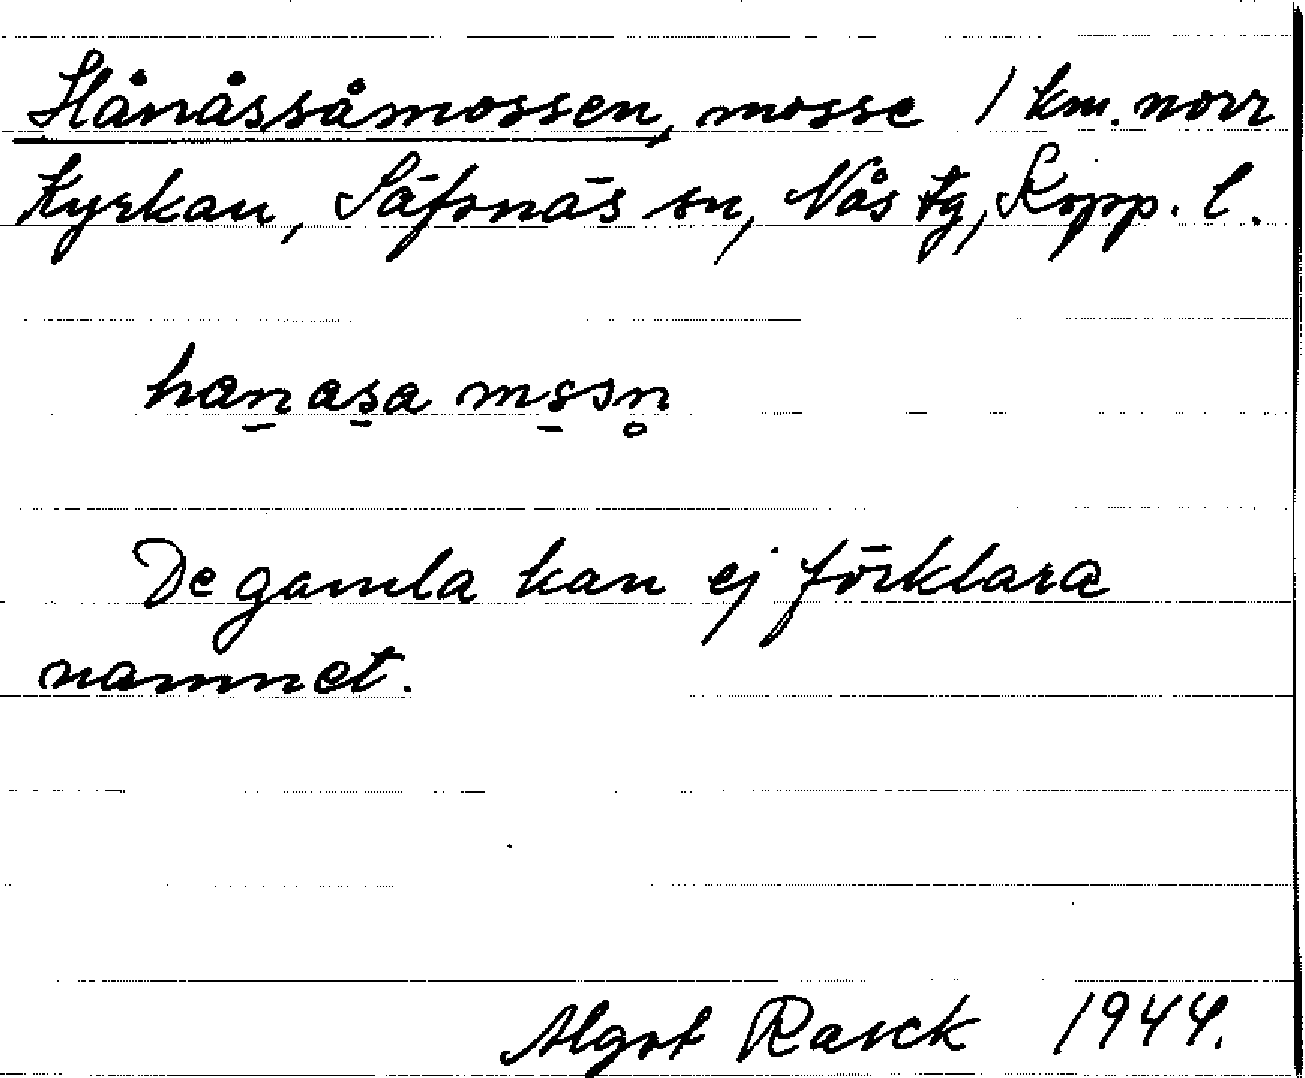 Hånåssåmossen, mosse 1 km. norr
Kyrkan, Säfsnäs sn, Nås tg, Kopp. l.
hanasa mssn
De gamla kan ej förklara
namnet.
Algot Rask 1944.